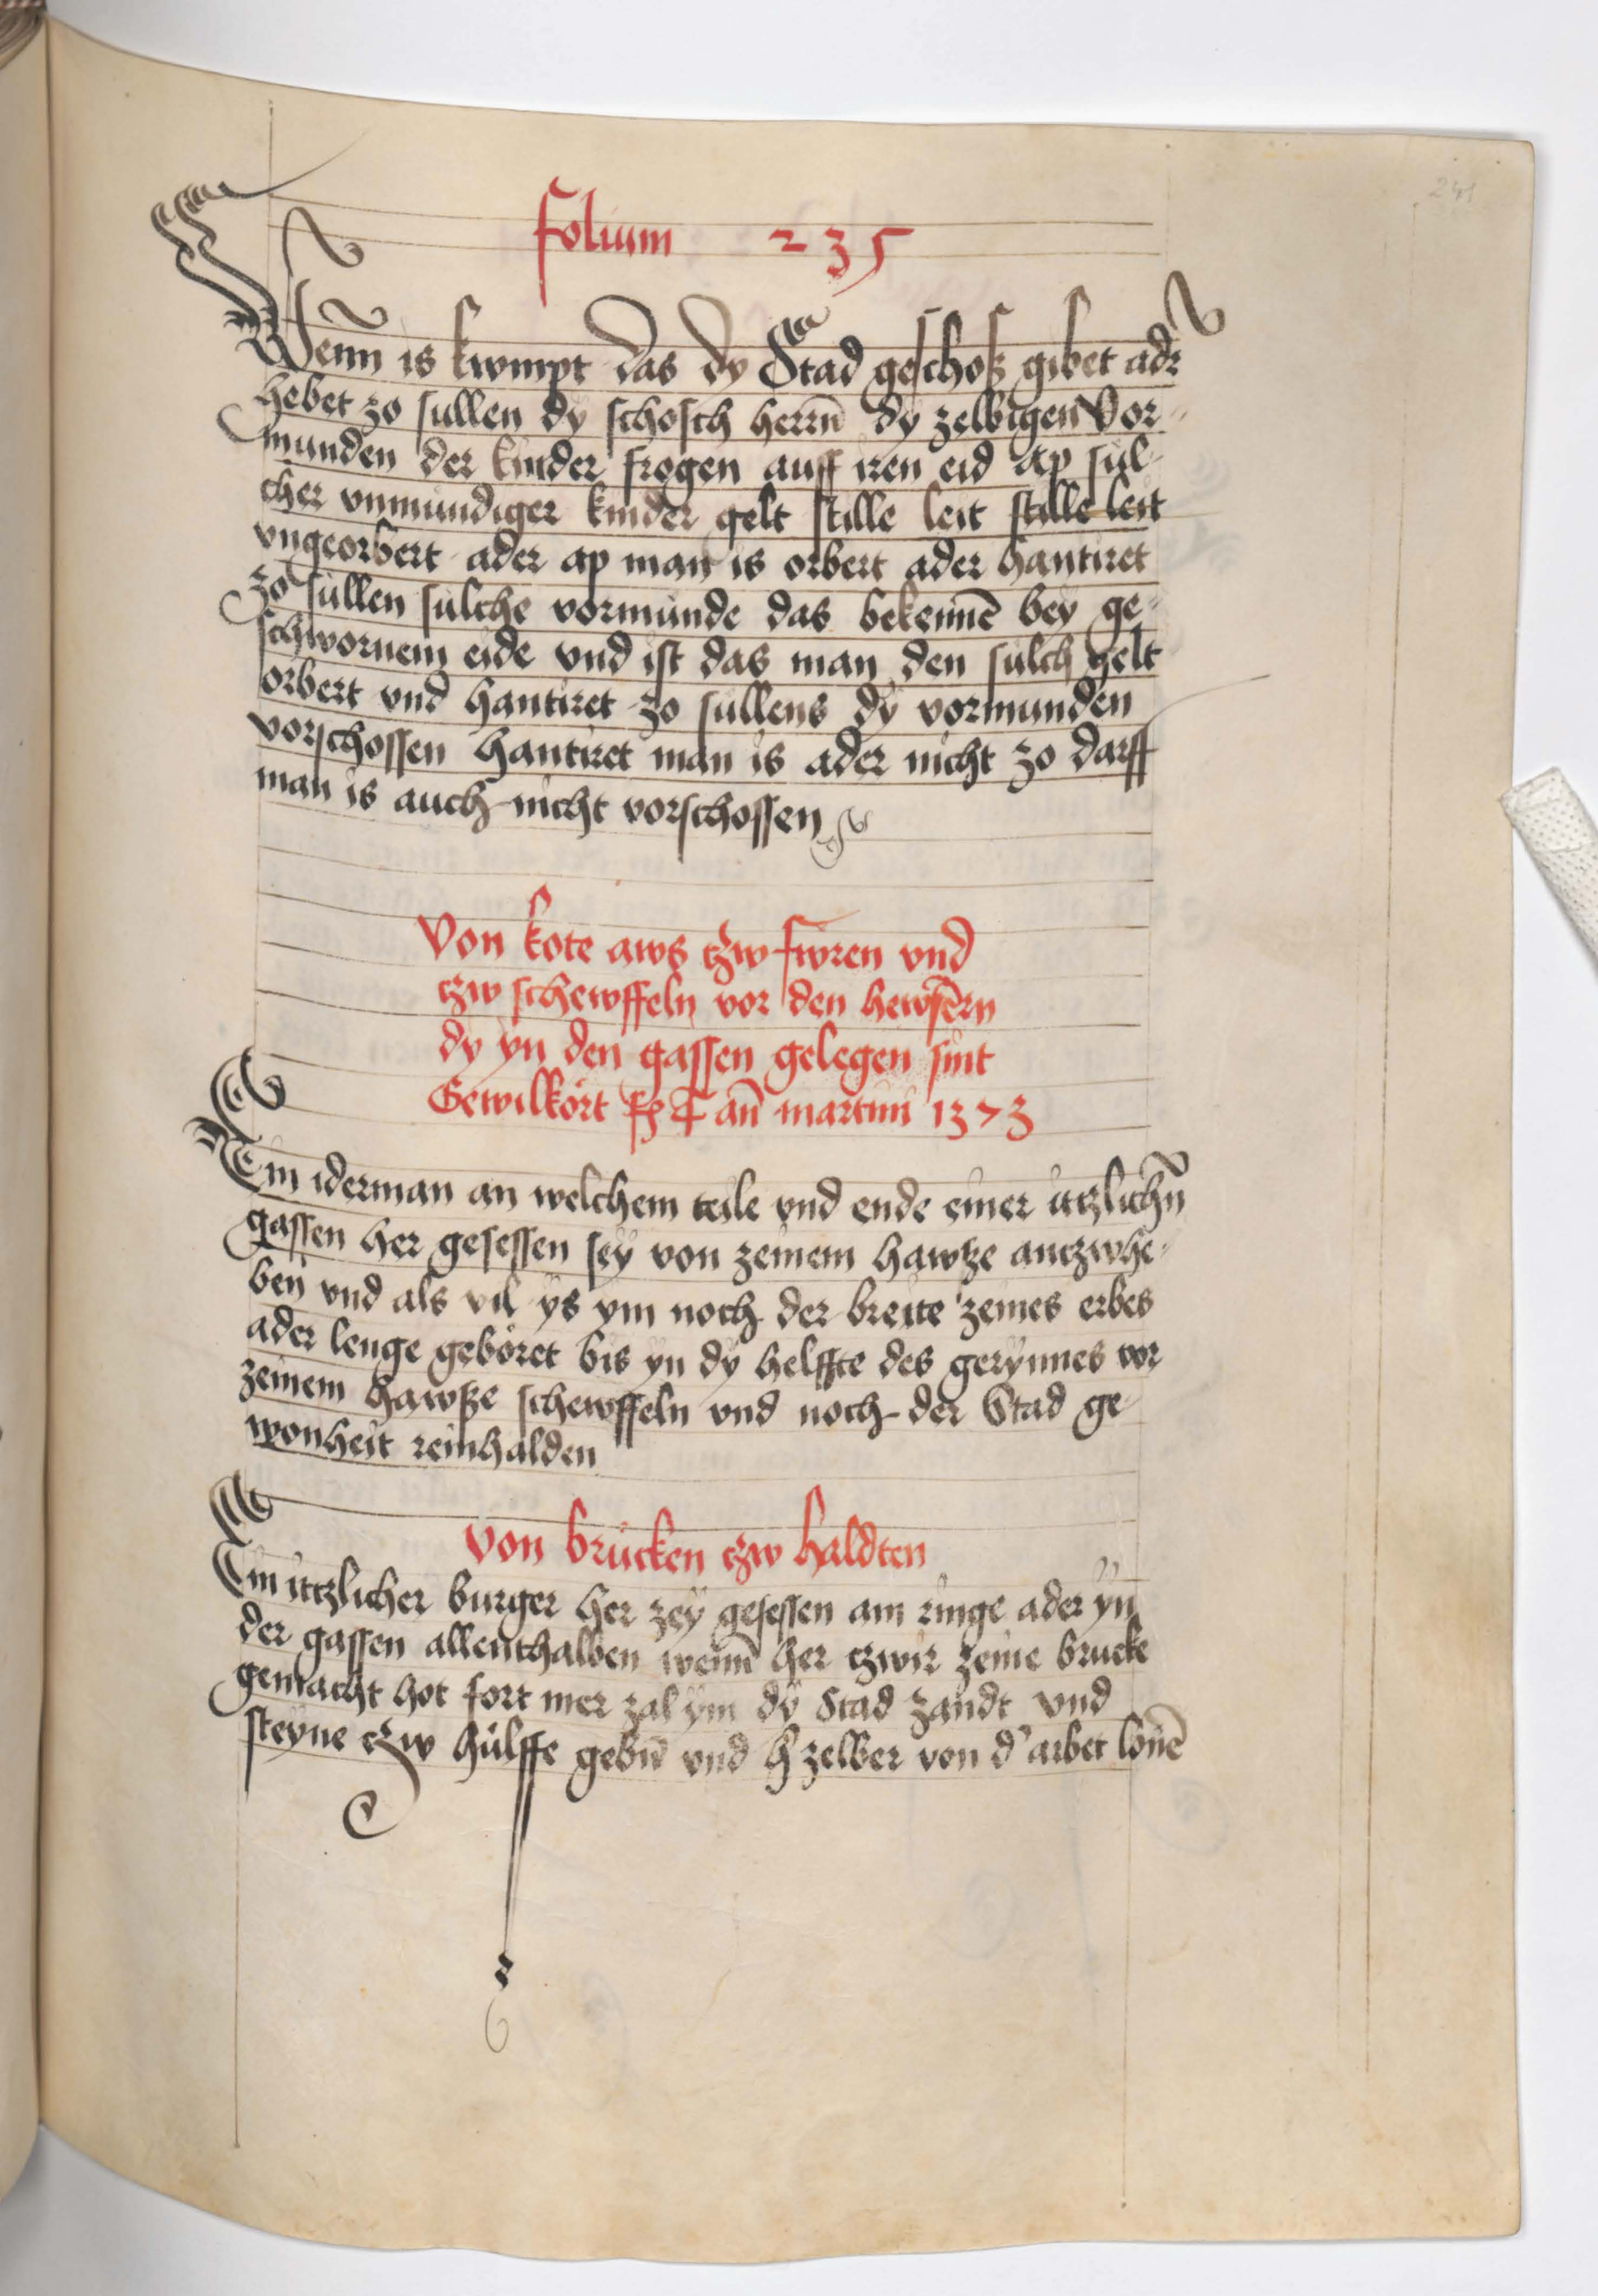 folium 235
Wenn is kwmpt das dy Stad geschoß gibet adr
hebet zo sullen dy schosch herrn̄ dy zelbigen Vor-
munden der kinder frogen auff iren eid ap sul-
cher vnmundiger kinder gelt stille leit stille leit
vngeorbert ader ap man is orbert ader hantiret
zo sullen sulche vormunde das bekennē bey ge-
schwornem eide vnd ist das man den sulch gelt
orbert vnd hantiret zo sullens dy vormunden
vorschossen hantiret man is ader nicht zo darff
man is auch nicht vorschossen
Von kote aws tzw fwren vnd
tzw schewffeln vor den hewsērn
dy yn den gassen gelegen sint
Gewilkört an̄ martini 1373
Ein iderman an welchem teile vnd ende einer itzlichn̄
gassen her gesessen sey von zeinem hawße antzwhe-
ben vnd als vil ys ym noch der breite zeines erbes
ader lenge geböret bis yn dy helffte des gerynnes vor
zeinem hawße schewffeln vnd noch der Stad ge-
wonheit reinhalden
Von brucken tzw haldten
Ein itzlicher burger her zey gesessen am ringe ader yn
der gassen allenthalben wenn̄ her tzwir zeine brucke
gemacht hot fort mer zal ym dy Stad zandt vnd
steyne tzw hülffe gebn̄ vnd h̓ zelber von d' arbet lonē
241